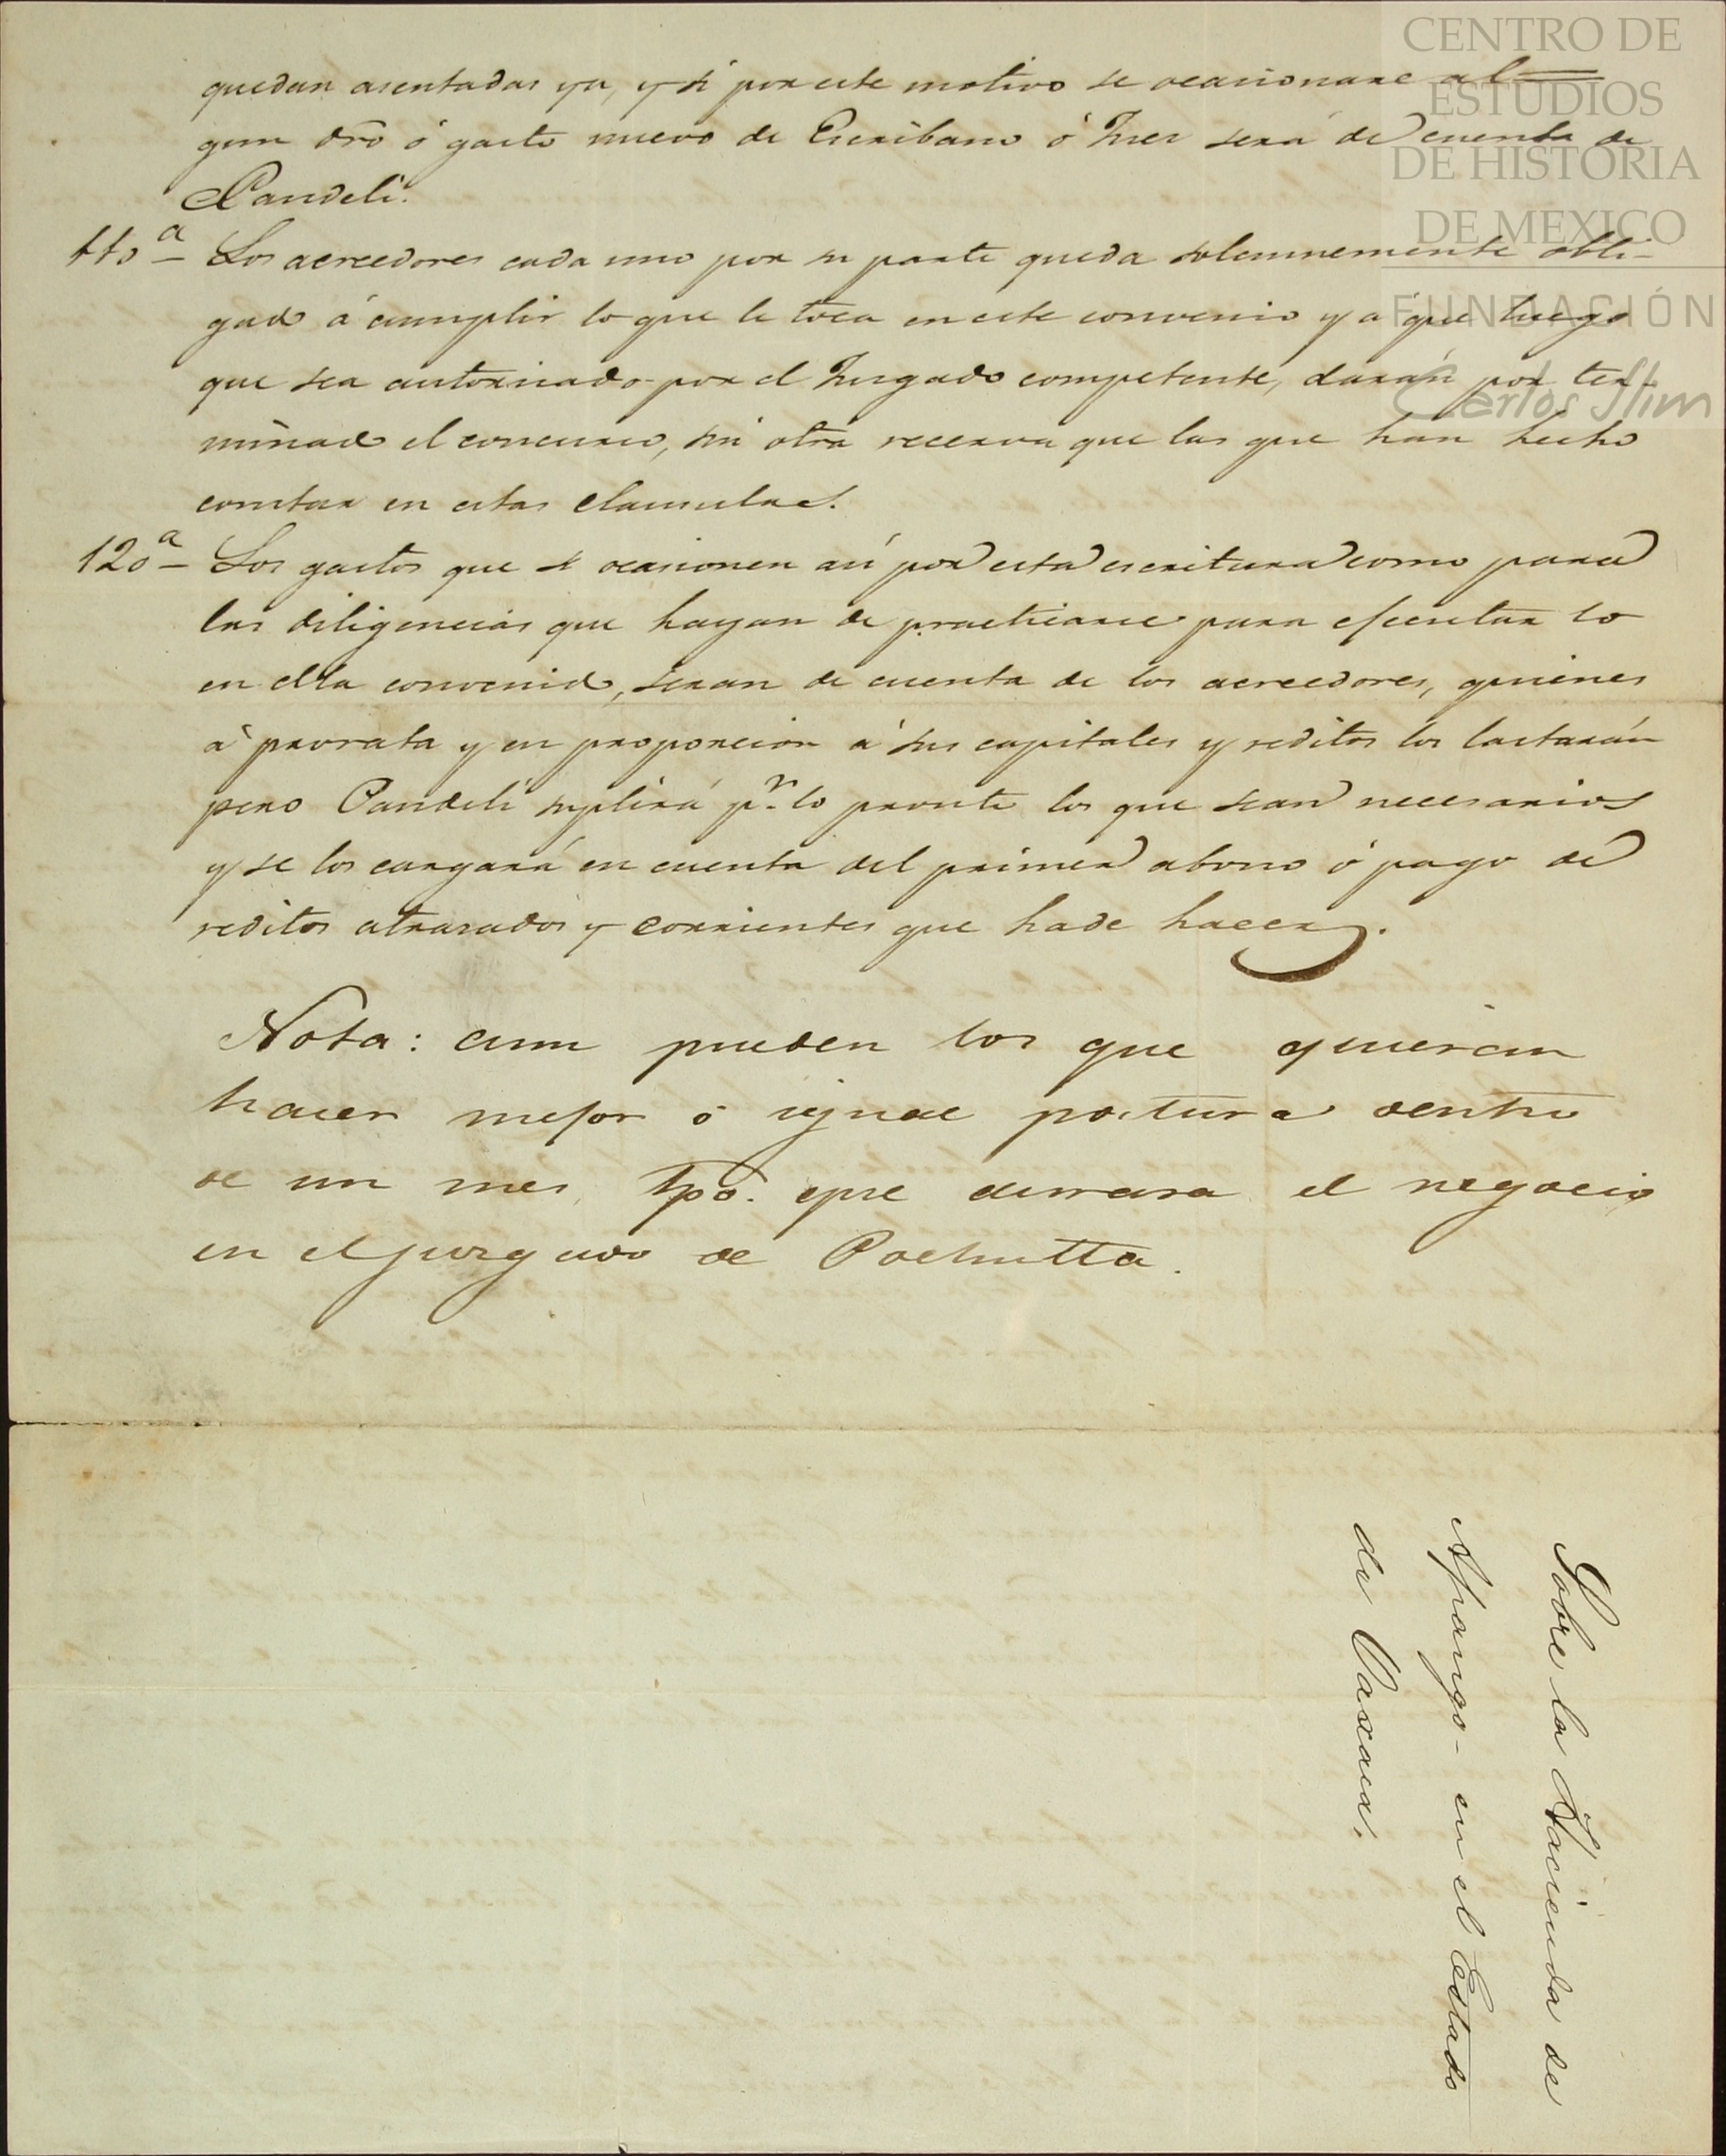 quedan asentadas ya, y si por este motivo se ocasionare al=
gun dro ó gasto nuevo de Escribano ó Juez será de cuenta de
Pandeli.
11ª Los acreedores cada uno por su parte queda solemnemente obli-
gado á cumplir lo que le toca en este convenio y a que luego
que sea autorisado por el Jusgado competente, darán por ter-
minado el concurso, sin otra reserva que las que han hecho
constar en estas clausulas.
12ª Los gastos que se ocasionen asi por esta escritura como para
las diligencias que hayan de practicarse para ejecutar lo
en ella convenido, seran de cuenta de los acreedores, quienes
á prorrata y en proporcion á sus capitales y reditos los lastarán
pero Pandeli suplirá pr. lo pronto los que sean necesarios
y se los cargará en cuenta del primer abono ó pago de
reditos atrasados y corrientes que hade hacer.
Nota: aun pueden los que quieran
hacer mejor ó igual postura dentro
de un mes, tpo. que durara el negocio
en el juzgado de Pochutla.
Sobre la Hacienda de
Apango - en el Estado
de Oaxaca.
CENTRO DE
ESTUDIOS
DE HISTORIA
DE MEXICO
FUNDACIÓN
Carlos Slim